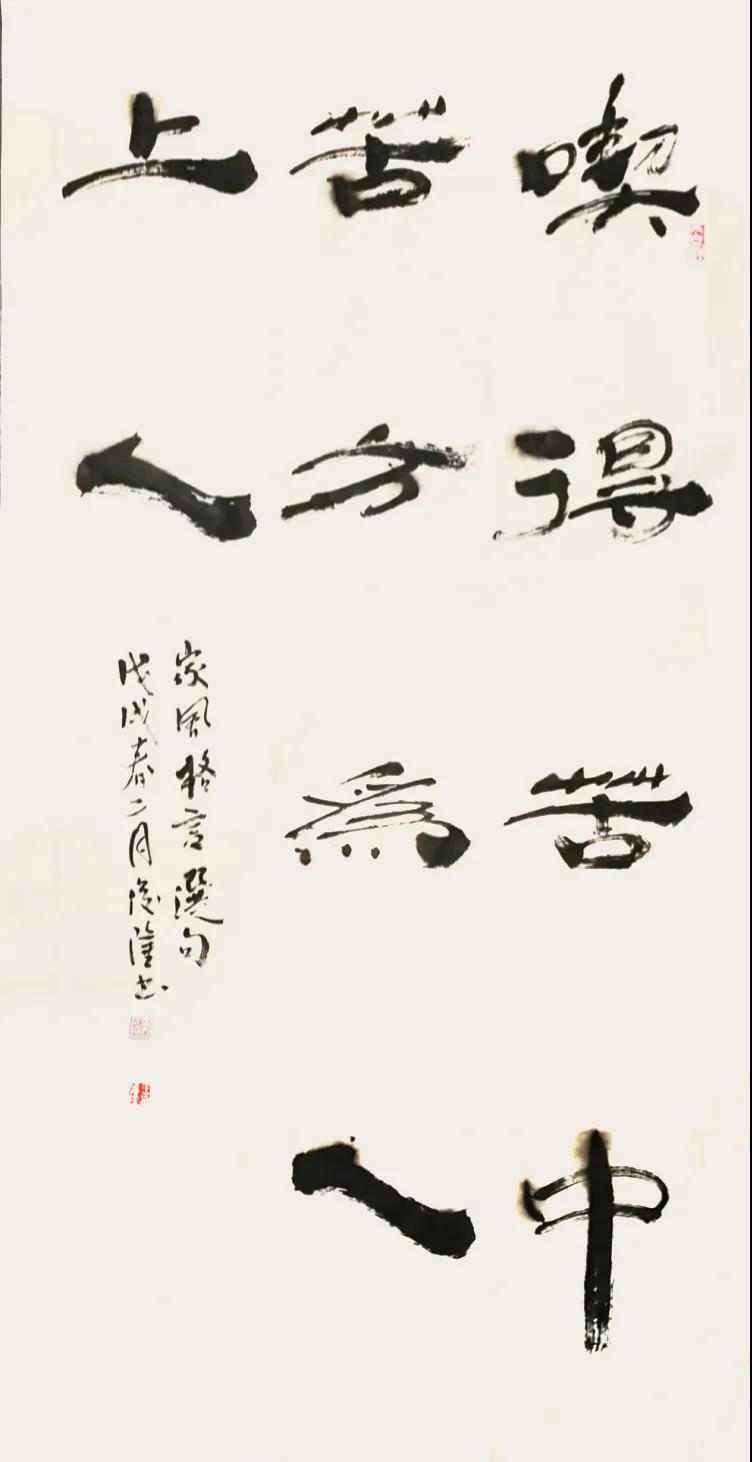 喫得苦中
苦方為人
上人
家風格言選句
戊戌春二月隆书